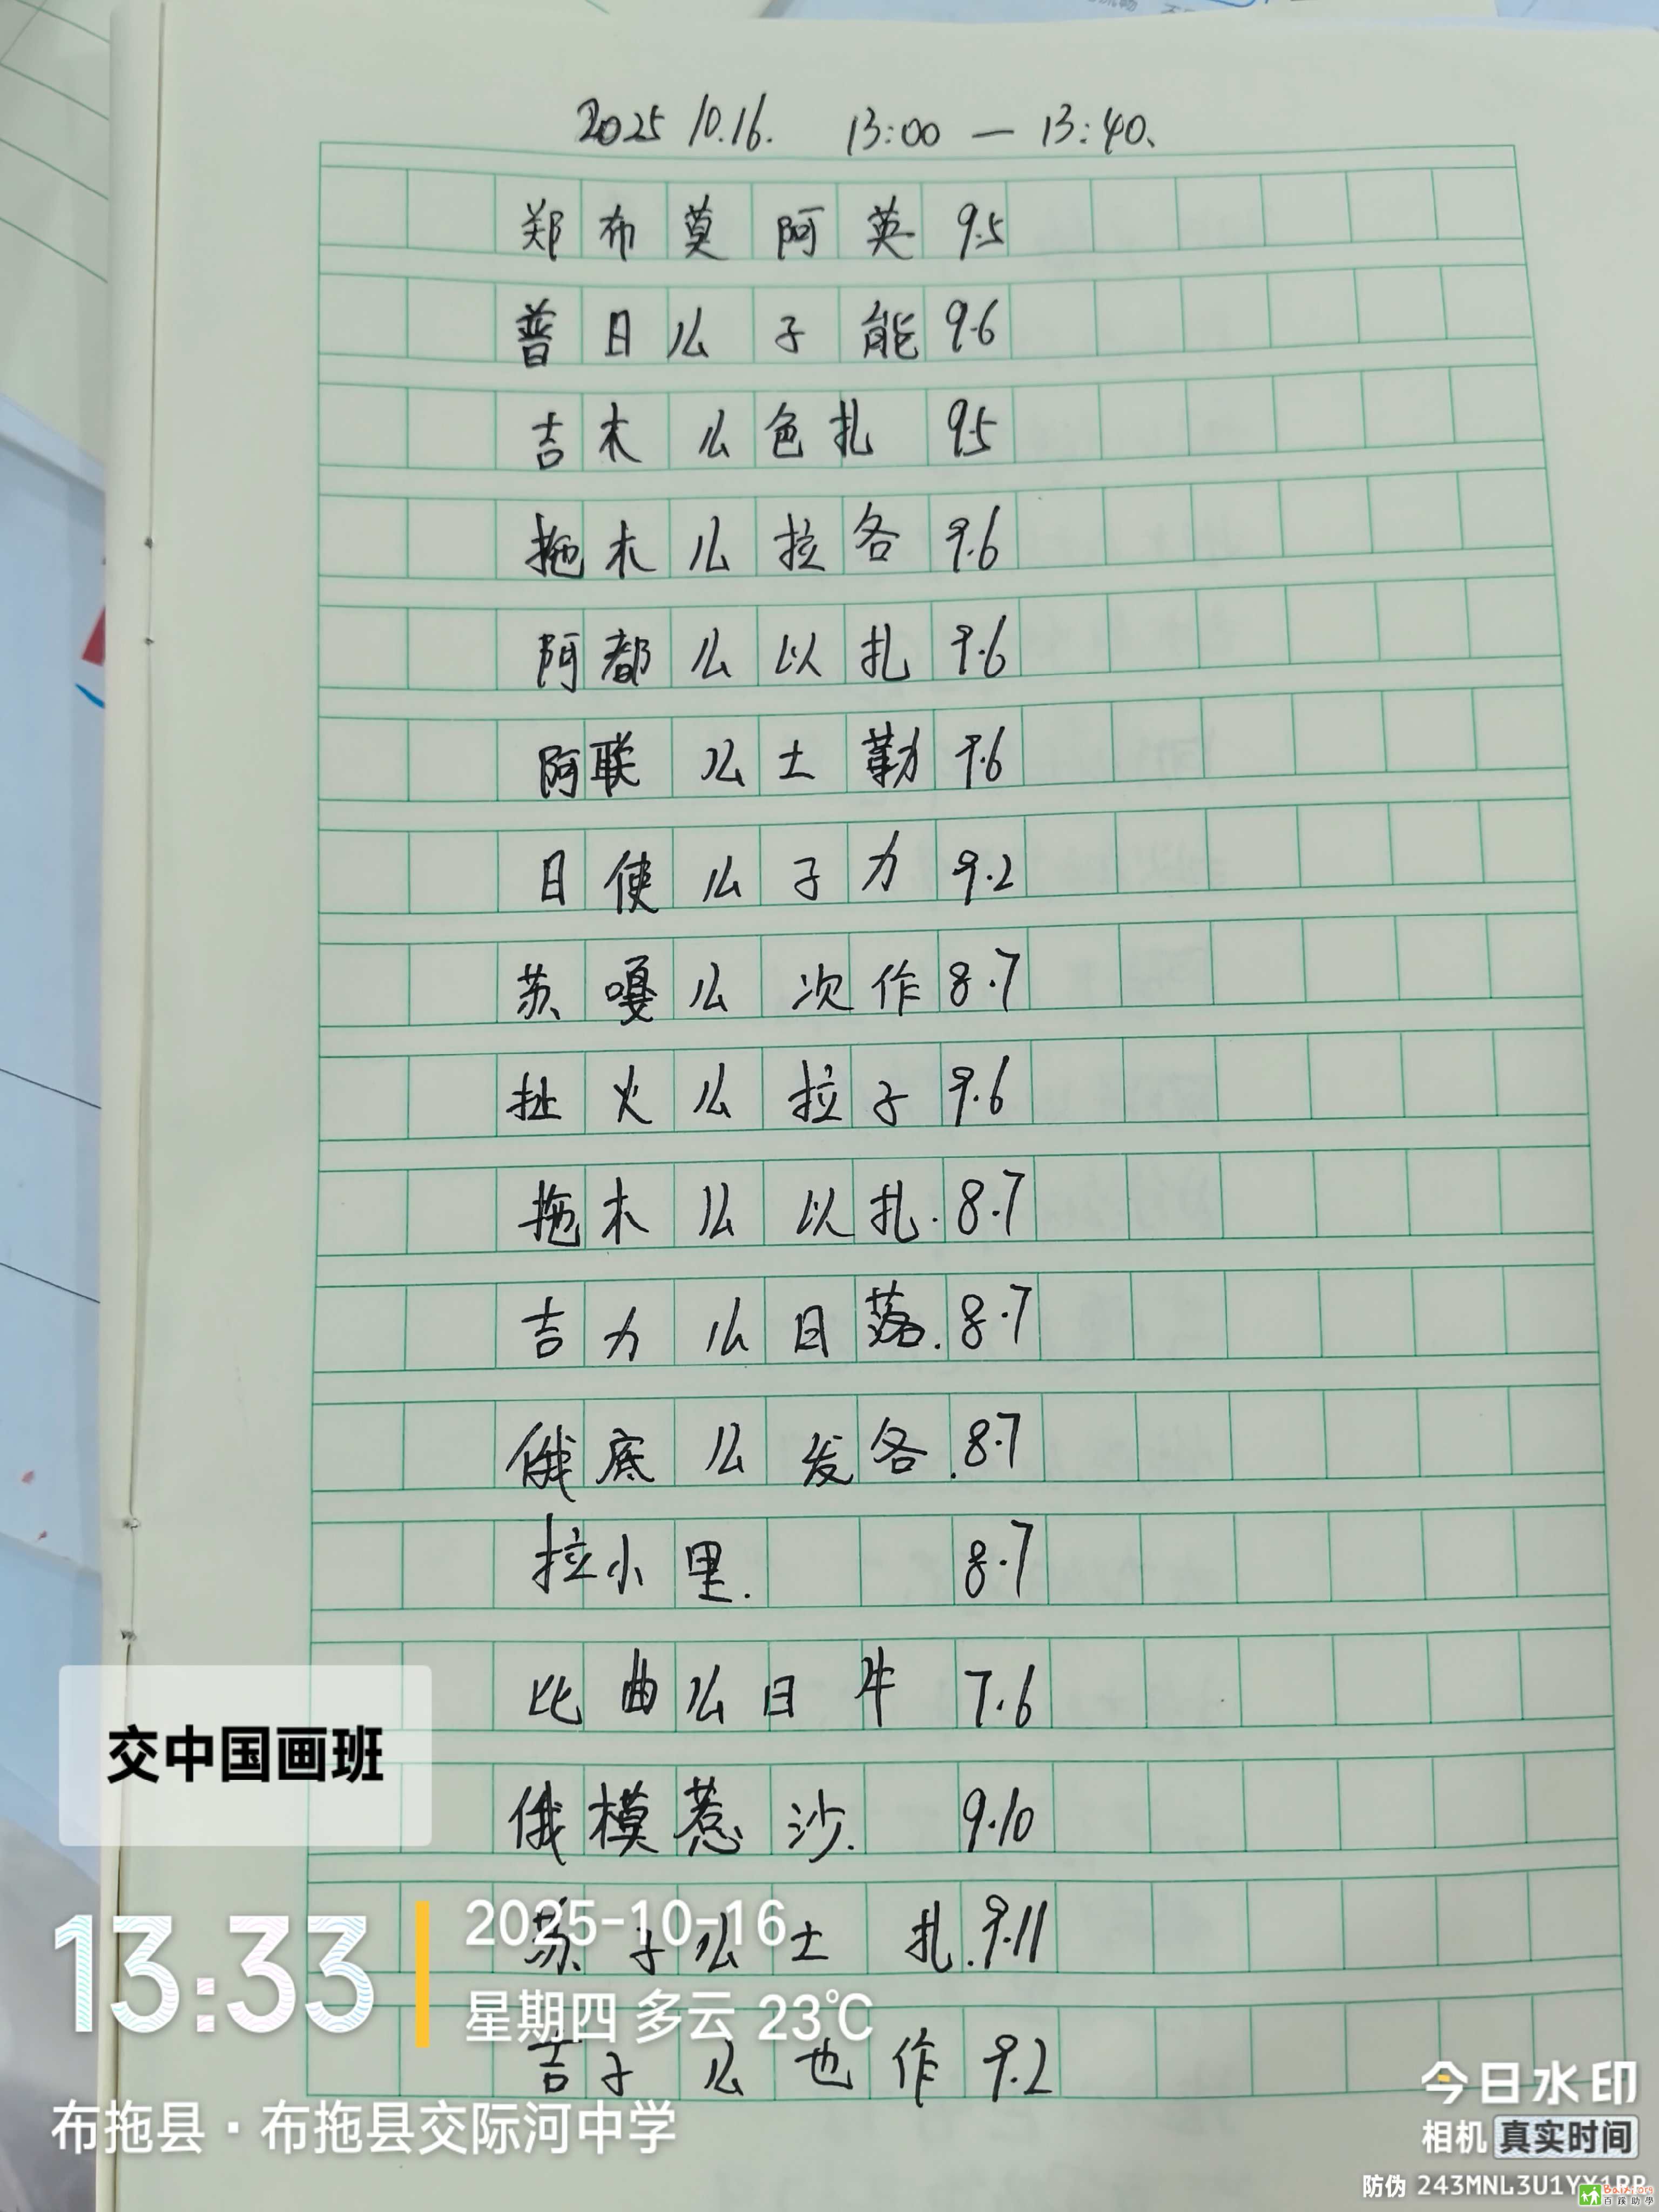 2025 10.16. 13:00 — 13:40、
郑布莫阿英 9.5
普日么子能 9.6
吉木么色扎 9.5
拖木么拉各 9.6
阿都么以扎 9.6
阿联么土勒 9.6
日使么子力 9.2
苏嘎么次作 8.7
扯火么拉子 9.6
拖木么以扎. 8.7
吉力么日落. 8.7
俄底么发各. 8.7
拉小里. 8.7
比曲么日牛 7.6
俄模惹沙. 9.10
苏子么土扎. 9.11
吉子么也作 9.2
交中国画班
13:33
2025-10-16
星期四 多云 23℃
布拖县·布拖县交际河中学
今日水印
相机 真实时间
防伪 243MNL3U1YX1RR
百蹊助學